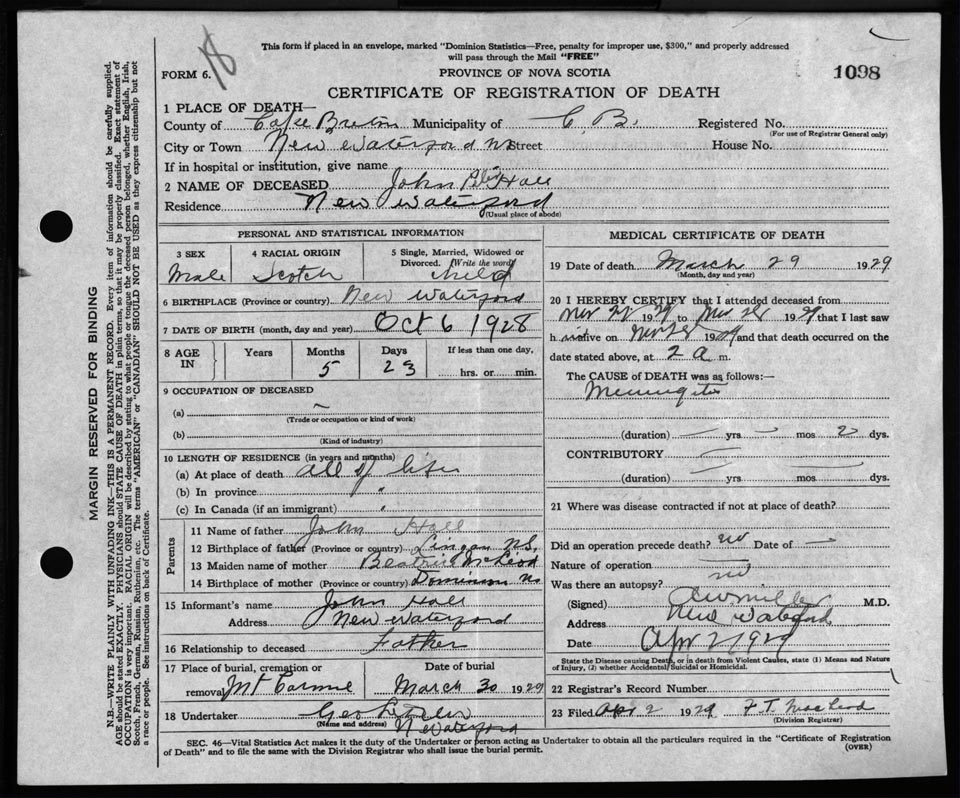 This form if placed in an envelope, marked "Dominion Statistics—Free, penalty for improper use, $300," and properly addressed
will pass through the Mail "FREE"
FORM 6.
18
PROVINCE OF NOVA SCOTIA
1098
CERTIFICATE OF REGISTRATION OF DEATH
1 PLACE OF DEATH—
County of Cape Breton Municipality of C. B. Registered No.
(For use of Registrar General only)
City or Town New Waterford NS Street House No.
If in hospital or institution, give name
2 NAME OF DECEASED John Hall
Residence New Waterford
(Usual place of abode)
PERSONAL AND STATISTICAL INFORMATION
3 SEX 4 RACIAL ORIGIN 5 Single, Married, Widowed or
Divorced. (Write the word)
Male Scotch Child
6 BIRTHPLACE (Province or country) New Waterford
7 DATE OF BIRTH (month, day and year) Oct 6 1928
8 AGE IN Years Months Days If less than one day,
5 23 hrs. or min.
9 OCCUPATION OF DECEASED
(a) —
(Trade or occupation or kind of work)
(b)
(Kind of industry)
10 LENGTH OF RESIDENCE (in years and months)
(a) At place of death all of life
(b) In province "
(c) In Canada (if an immigrant) "
Parents
11 Name of father John Hall
12 Birthplace of father (Province or country) Lingan NS.
13 Maiden name of mother Beatrice McLeod
14 Birthplace of mother (Province or country) Dominion NS
15 Informant's name John Hall
Address New Waterford
16 Relationship to deceased Father
17 Place of burial, cremation or Date of burial
removal Mt Carmel March 30 1929
18 Undertaker Geo
(Name and address) N Waterford
MEDICAL CERTIFICATE OF DEATH
19 Date of death March 29 1929
(Month, day and year)
20 I HEREBY CERTIFY that I attended deceased from
1929 to 1929 that I last saw
h alive on 1929 and that death occurred on the
date stated above, at 2 a m.
The CAUSE of DEATH was as follows:—
Meningitis
(duration) — yrs — mos 2 dys.
CONTRIBUTORY —
(duration) — yrs — mos — dys.
21 Where was disease contracted if not at place of death?
Did an operation precede death? no Date of —
Nature of operation —
Was there an autopsy? no
(Signed) M.D.
Address New Waterford
Date Apr 2/1929
State the Disease causing Death, or in death from Violent Causes, state (1) Means and Nature
of Injury, (2) whether Accidental, Suicidal or Homicidal.
22 Registrar's Record Number
23 Filed Apr 2 1929 F. T. MacLeod
(Division Registrar)
SEC. 46—Vital Statistics Act makes it the duty of the Undertaker or person acting as Undertaker to obtain all the particulars required in the "Certificate of Registration
of Death" and to file the same with the Division Registrar who shall issue the burial permit.
(OVER)
MARGIN RESERVED FOR BINDING
N.B.—WRITE PLAINLY WITH UNFADING INK—THIS IS A PERMANENT RECORD. Every item of information should be carefully supplied.
AGE should be stated EXACTLY. PHYSICIANS should STATE CAUSE OF DEATH in plain terms, so that it may be properly classified. Exact statement of
OCCUPATION is very important. RACIAL ORIGIN will be described by stating to what people or tongue the deceased person belonged, whether English, Irish,
Scotch, French, German, Russian, Ruthenian, etc. The terms "AMERICAN" or "CANADIAN" SHOULD NOT BE USED as they express citizenship but not
a race or people. See instructions on back of Certificate.